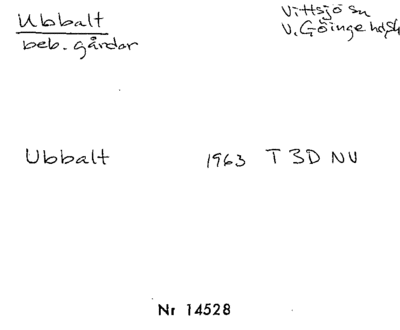 Ubbalt
beb. gårdar
Vittsjö sn
V. Göinge hd
Ubbalt 1963 T 3D NV
Nr 14528